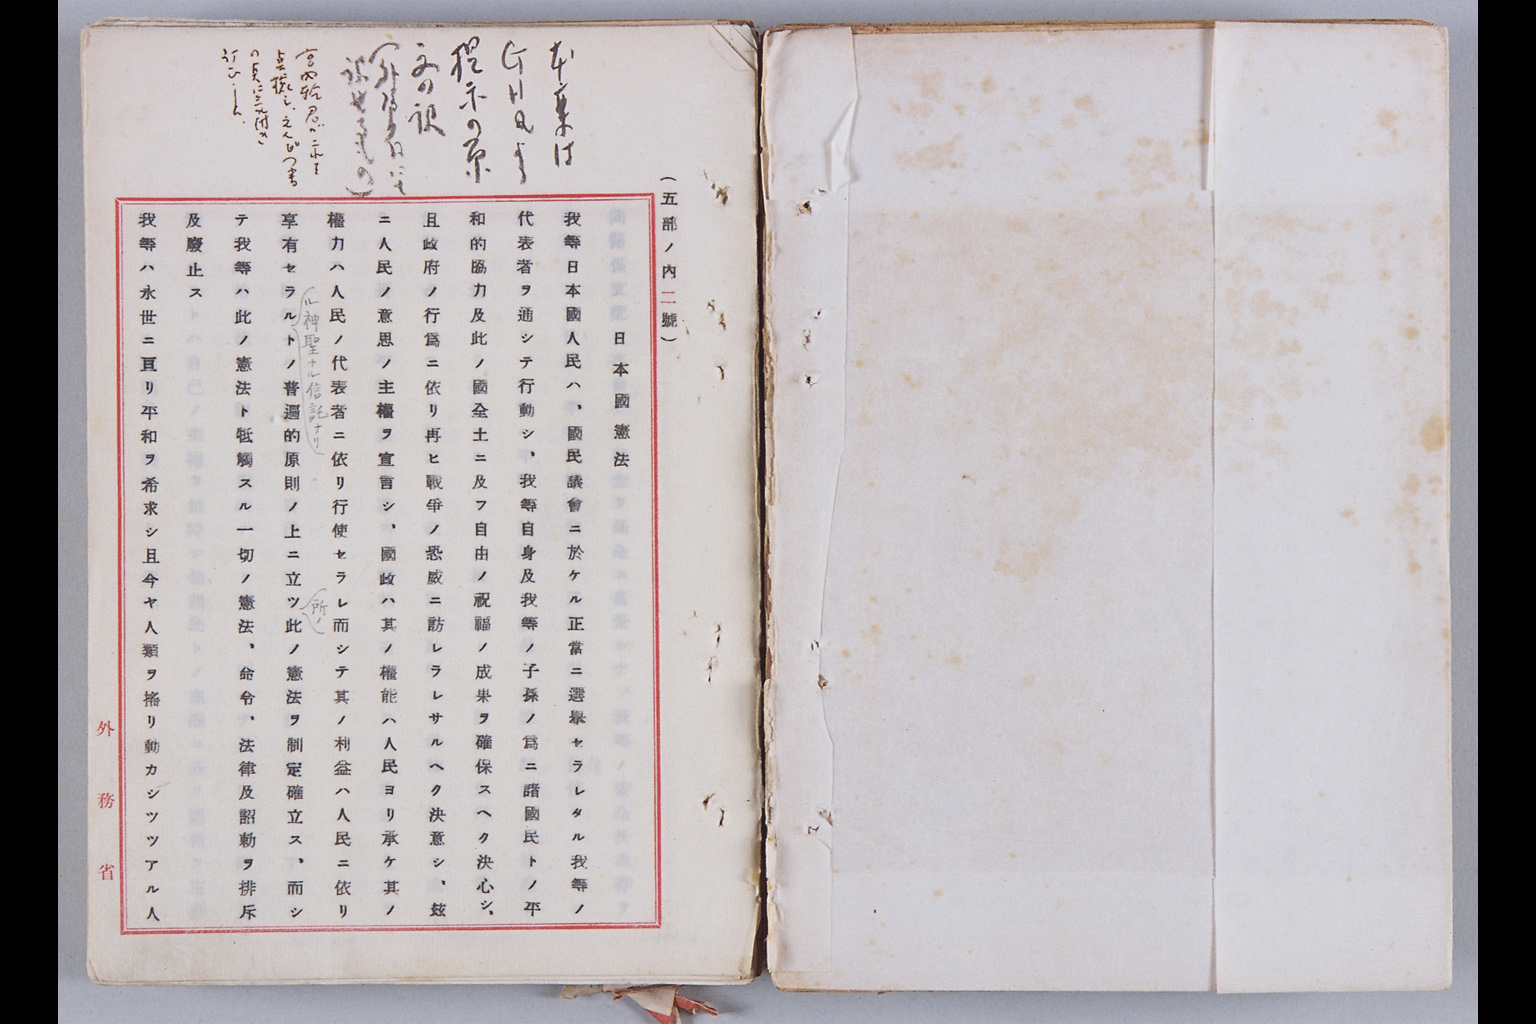 本案は
GHQよ
提示の原
文の訳
(外務省に
訳せるもの)
(五部ノ內二號)
日本國憲法
我等日本國人民ハ、國民議會ニ於ケル正當ニ選擧セラレタル我等ノ
代表者ヲ通シテ行動シ、我等自身及我等ノ子孫ノ爲ニ諸國民トノ平
和的協力及此ノ國全土ニ及フ自由ノ祝福ノ成果ヲ確保スヘク決心シ、
且政府ノ行爲ニ依リ再ヒ戰爭ノ恐威ニ訪レラレサルヘク決意シ、玆
ニ人民ノ意思ノ主權ヲ宣言シ、國政ハ其ノ權能ハ人民ヨリ承ケ其ノ
權力ハ人民ノ代表者ニ依リ行使セラレ而シテ其ノ利益ハ人民ニ依リ
ル神聖ナル信託ナリ
所ノ
享有セラルトノ普遍的原則ノ上ニ立ツ此ノ憲法ヲ制定確立ス、而シ
テ我等ハ此ノ憲法ト牴觸スル一切ノ憲法、命令、法律及詔勅ヲ排斥
及廢止ス
我等ハ永世ニ亘リ平和ヲ希求シ且今ヤ人類ヲ搖リ動カシツツアル人
外務省